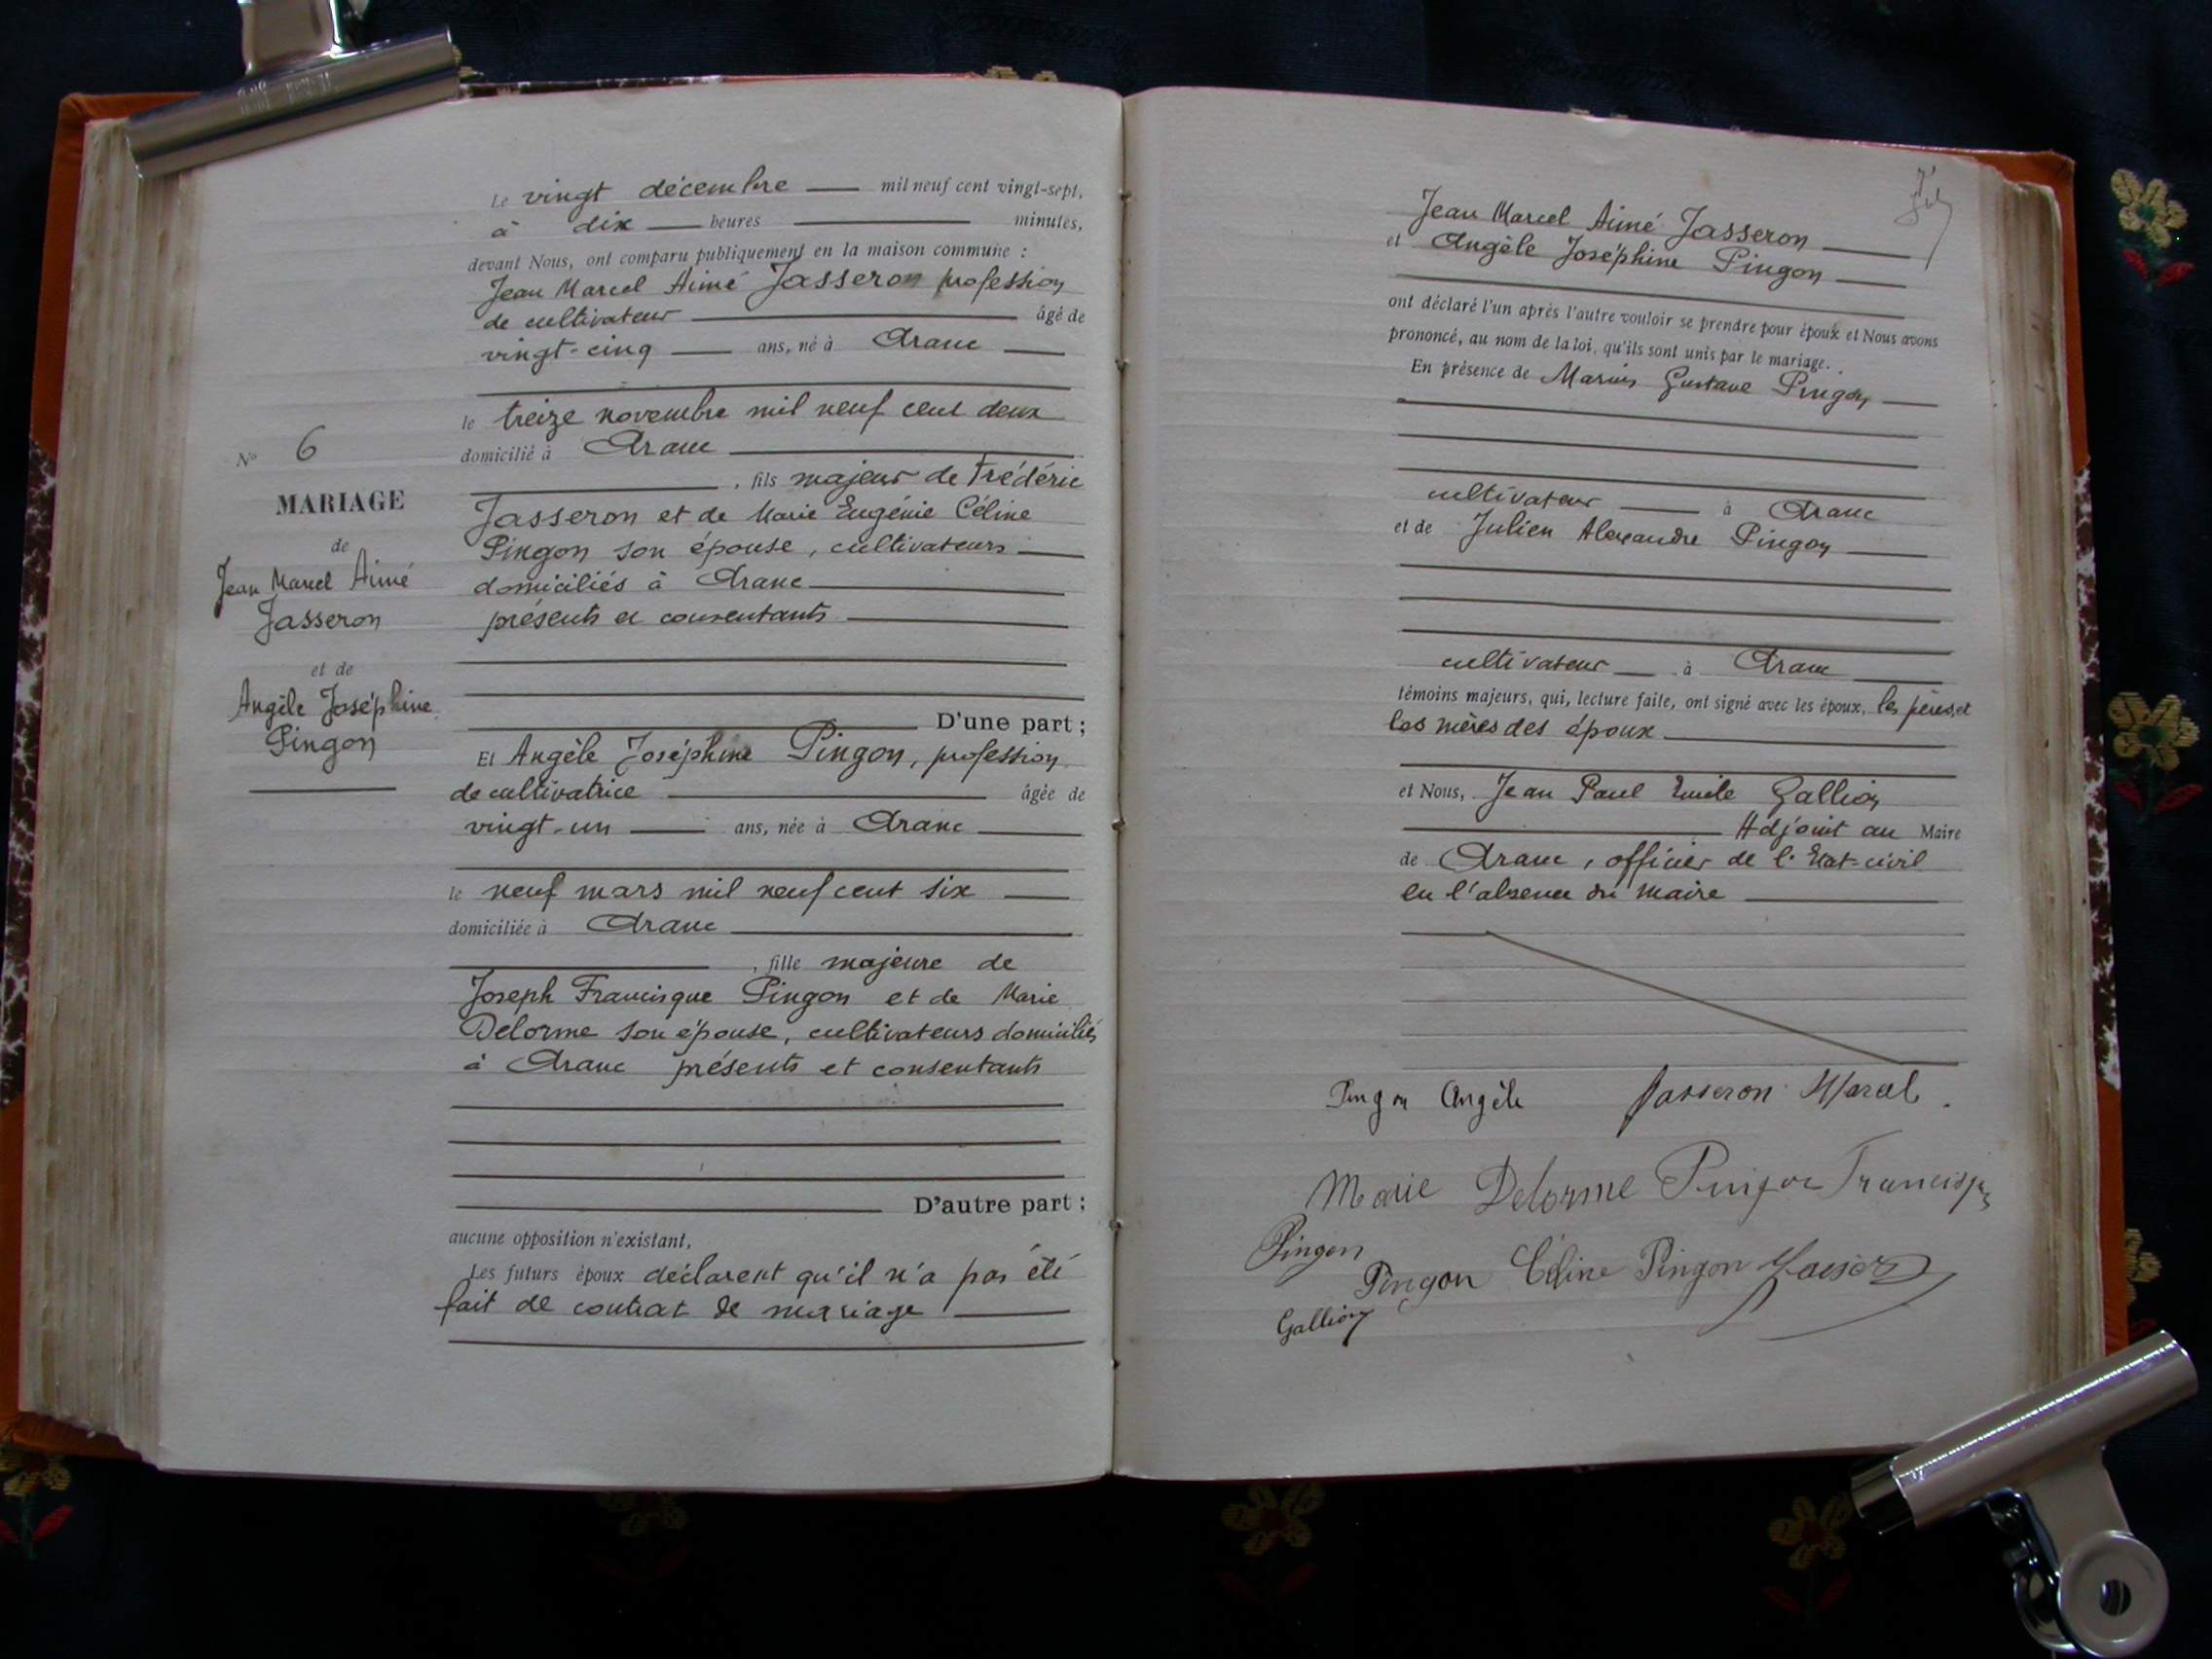 Le vingt décembre mil neuf cent vingt-sept,
à dix heures minutes,
devant Nous, ont comparu publiquement en la maison commune :
Jean Marcel Aimé Jasseron profession
de cultivateur âgé de
vingt-cinq ans, né à Aranc
le treize novembre mil neuf cent deux
domicilié à Aranc
, fils majeur de Frédéric
Jasseron et de Marie Eugénie Céline
Pingon son épouse, cultivateurs
domiciliés à Aranc
présents et consentants
D'une part ;
N° 6
MARIAGE
de
Jean Marcel Aimé
Jasseron
et de
Angèle Joséphine
Pingon
Et Angèle Joséphine Pingon, profession
de cultivatrice âgée de
vingt-un ans, née à Aranc
le neuf mars mil neuf cent six
domiciliée à Aranc
, fille majeure de
Joseph Francisque Pingon et de Marie
Delorme son épouse, cultivateurs domiciliés
à Aranc présents et consentants
D'autre part ;
aucune opposition n'existant,
Les futurs époux déclarent qu'il n'a pas été
fait de contrat de mariage
Jean Marcel Aimé Jasseron
et Angèle Joséphine Pingon
ont déclaré l'un après l'autre vouloir se prendre pour époux et Nous avons
prononcé, au nom de la loi, qu'ils sont unis par le mariage.
En présence de Marius Gustave Pingon
cultivateur à Aranc
et de Julien Alexandre Pingon
cultivateur à Aranc
témoins majeurs, qui, lecture faite, ont signé avec les époux, les pères et
les mères des époux
et Nous, Jean Paul Emile Gallion
Adjoint au Maire
de Aranc, officier de l'Etat-civil
en l'absence du maire
Pingon Angèle Jasseron Marcel.
Marie Delorme Pingon Francisque
Pingon
Pingon Céline Pingon
Gallion